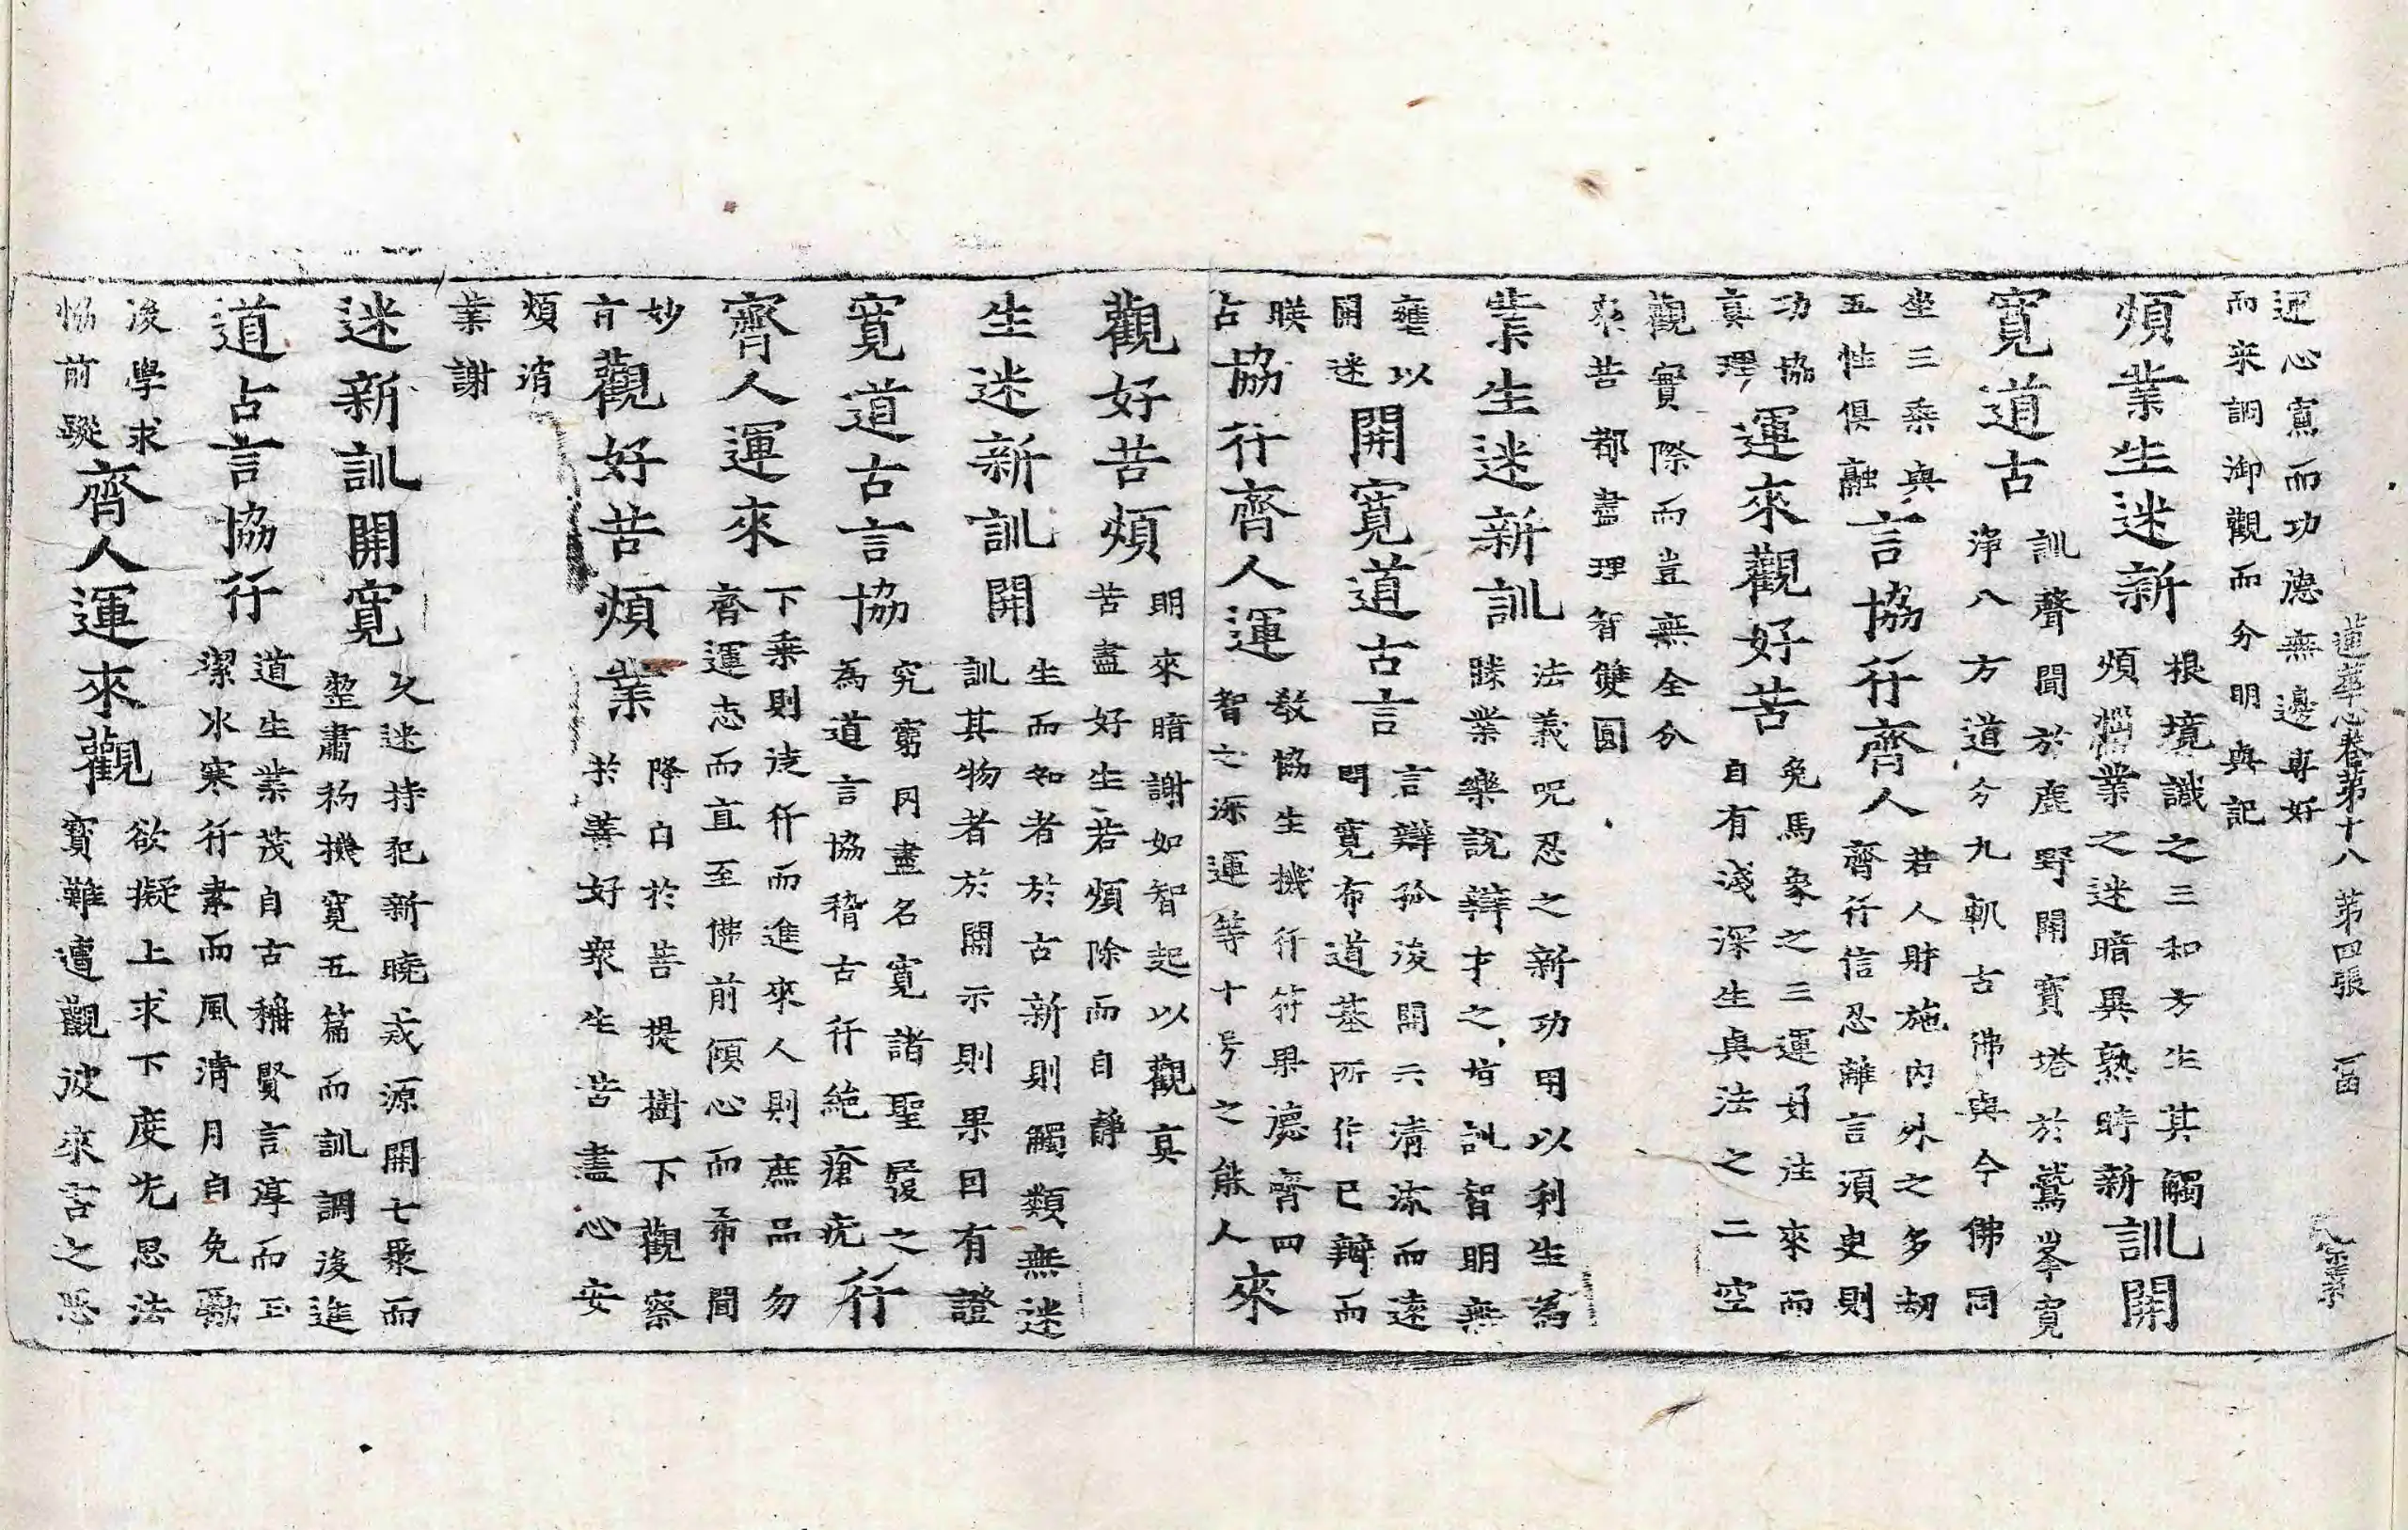 蓮華心卷第十八 第四張
運心寬而功德無邊專好
而來調御觀而分明真記
煩業生迷新
根境識之三和方生其觸
煩惱業之迷暗異熟時新
訓開
寬道古
訓聲聞於鹿野開寶塔於鷲峯寬
淨八方道分九軌古佛與今佛同
坐三乘與
五性俱融
言協行齊人
若人財施內外之多劫
齊行信忍離言須臾則
功協
真理
運來觀好苦
兔馬象之三運好法來而
自有淺深生與法之二空
觀實際而豈無全分
來苦都盡理智雙圓
業生迷新訓
法義呪忍之新功用以利生為
業樂說辯才之訓智明無
壅以
開迷
開寬道古言
言辯弥後開六清流而遠
門寬布道基所作已辦而
古
協行齊人運
教協生機行符果德齊四
智之深運等十号之能人
來
觀好苦煩
明來暗謝如智起以觀真
苦盡好生若煩除而自靜
生迷新訓開
生而知者於古新則觸類無迷
訓其物者於開示則果因有證
寬道古言協
究窮因盡名寬諸聖履之
為道言協稽古行絕瘡疣
行
齊人運來
下乘則淺行而進來人則庶品勿
齊運志而直至佛前傾心而希聞
妙
言
觀好苦煩業
降白於菩提樹下觀察
於善好衆生苦盡心安
煩消
業謝
迷新訓開寬
久迷持犯新曉戒源開七聚而
整肅物機寬五篇而訓調後進
道古言協行
道生業茂自古稱賢言淳而玉
潔冰寒行素而風清月白免勸
後學求
協前蹤
齊人運來觀
欲擬上求下度先思法
寶難遭觀彼來言之悉